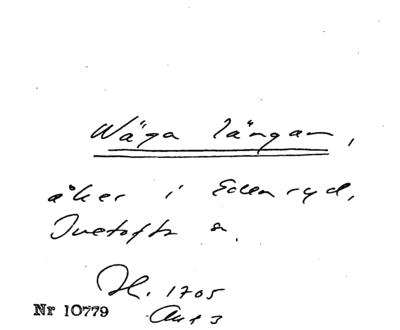 Wäga längan,
åker i Edenryd,
Ivetofta s.
H. 1705
Akt 3
Nr 10779